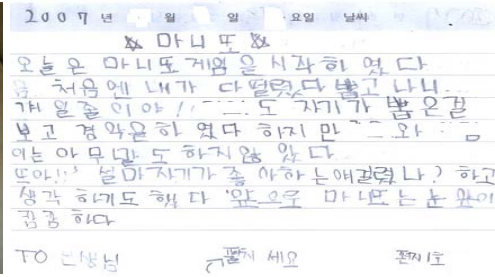 2007 년 월 일 요일 날씨
☆ 마니또 ☆
오늘은 마니또게임을 시작하였다
처음엔 내가 다떨렸다 뽑고 나니
도 자기가 뽑은걸
보고 경악을하였다 하지만 와
이는 아무말도 하지않았다
설마자기가 좋아하는애걸렸나? 하고
생각 하기도 했다 앞으로 마니또는 눈앞이
캄캄 하다
TO 선생님 펼치 세요 편지1호